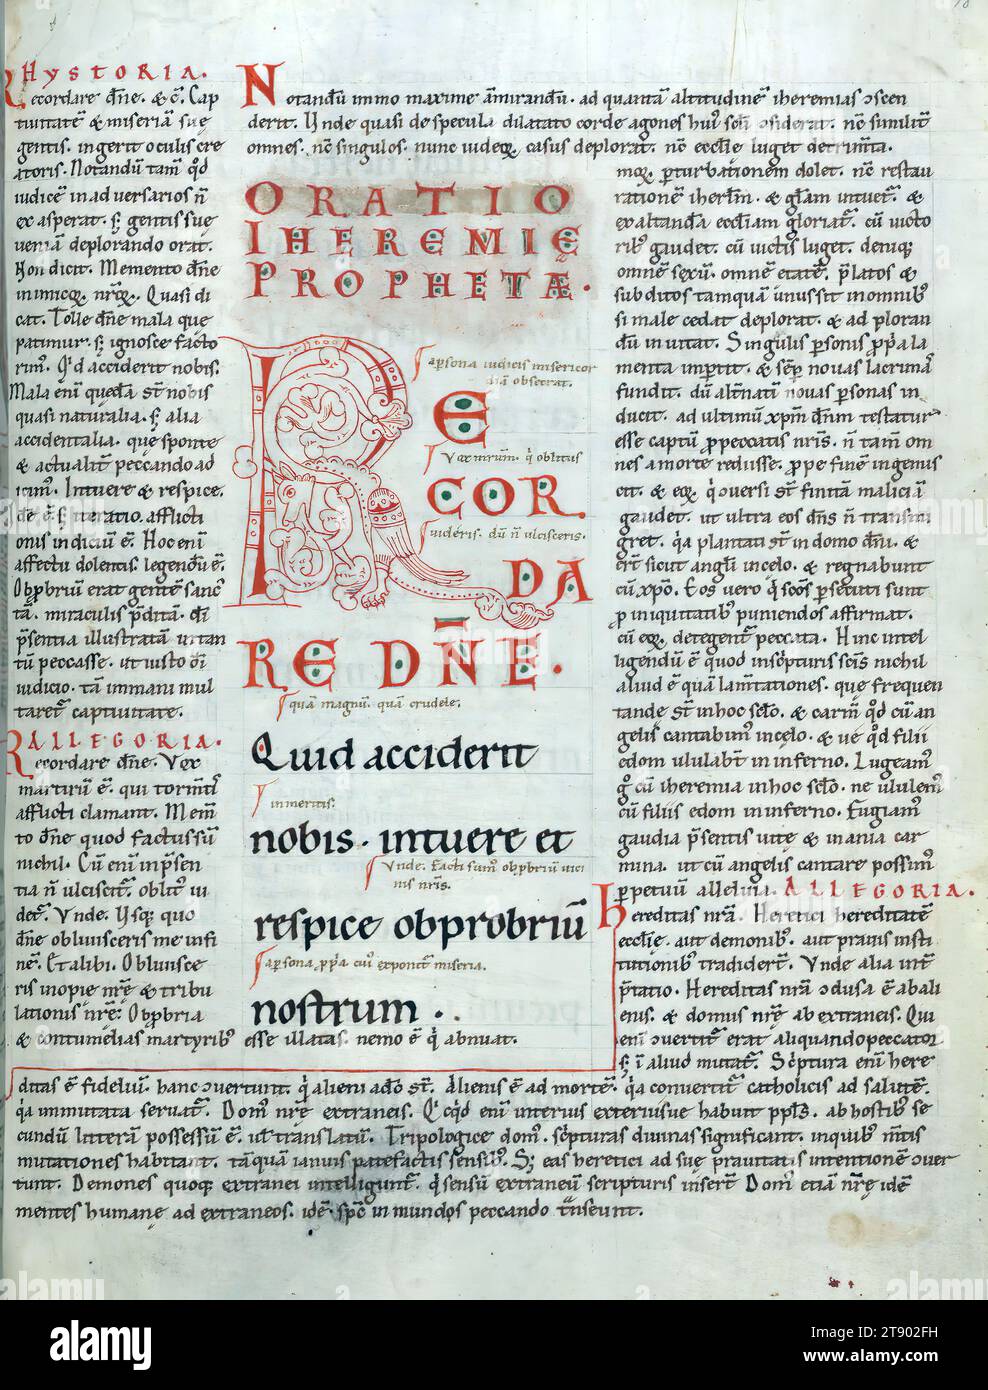 HYSTORIA.
Recordare dn̄e. & c̄. Cap
tiuitatē & miseriā sue
gentis. ingerit oculis cre
atoris. Notandū tam̄ qd̄
iudicē in aduersarios n̄
exasperat. s; gentis sue
ueniā deplorando orat.
Non dicit. Memento dn̄e
inimicoꝝ nr̄oꝝ. Quasi di
cat. Tolle dn̄e mala que
patimur. s; ignosce facto
rum. Qd̄ acciderit nobis.
Mala enī quedā st̄ nobis
quasi naturalia. s; alia
accidentalia. que sponte
& actualit̄ peccando ad
icim̄. Intuere & respice.
de ē. s; iteratio. afflicti
onis indiciū ē. Hoc enī
affectu dolentis. legendū ē.
Obp̄briū erat gentē sanc
tā. miraculis p̄ditā. di
p̄sentia illustratā. in tan
tū peccasse. ut iusto di
iudicio. tā immani mul
taret᷑ captiuitate.
ALLEGORIA.
Recordare dn̄e. Vox
martirū ē. qui torm̄tis
afflicti clamant. Mem̄
to dn̄e quod factus sū
nichil. Cū enī in p̄sen
tia n̄ ulciscit᷑. oblit᷒ ui
det᷑. Vnde. Vsq; quo
dn̄e obliuisceris me in fi
nē. Et alibi. Obliuisce
ris inopie nr̄e & tribu
lationis nr̄e. Obp̄bria
& contumelias martyrib᷒ esse illatas. nemo ē q̇ abnuat.
Notandū immo maxime āmirandū. ad quantā altitudinē iheremias ↄscen
derit. Vnde quasi de specula dilatato corde agones hui᷒ scī ↄsiderat. nc̄ similit̄
omnes. nc̄ singulos. nunc iudeoꝝ casus deplorat. nc̄ eccl̄ie luget detrim̄ta.
ORATIO
IHEREMIE
PROPHETÆ.
a p̲sona iudicis misericor
diā obsecrat.
RE
Vox nirum. q̇ oblitus
COR
uideris. dū n̄ ulcisceris.
DA
RE DN̄E.
quā magnū. quā crudele.
Quid acciderit
inmeritis.
nobis. intuere et
Vnde. Facti sum᷒ obp̄briū uici
nis nr̄is.
respice obprobriū
a p̲sona p̲p̄a cui᷒ exponet᷑ miseria.
nostrum..
moꝝ. p̲turbationem dolet. nc̄ restau
rationē iherl̄m. & gl̄am intuet᷑. &
exaltandā eccl̄iam gloriat᷑. cū uicto
rib᷒ gaudet. cū uictis luget. deniq;
omnē sexū. omnē etatē. p̄latos &
subditos tamquā unus sit in omnib᷒
si male cedat deplorat. & ad ploran
dū inuitat. Singulis p̲sonis p̲p̄a la
menta imp̲tit. & semp̲ nouas lacrimas
fundit. dū alt̄nati nouas p̲sonas in
ducit. ad ultimū xp̄m dn̄m testatur
esse captū p̲ peccatis nr̄is. n̄ tam̄ om
nes a morte redisse. p̲pe finē ingemis
cit. & eoꝝ q̇ ↄuersi st̄ finitā maliciā
gaudet. ut ultra eos dn̄s n̄ transmi
gret. q̇a plantati st̄ in domo dn̄i. &
er̄t sicut angl̄i in celo. & regnabunt
cū xp̄o. Eos uero q̇ scōs p̲secuti sunt
p̲ iniquitatib᷒ puniendos affirmat.
cū eoꝝ detegent᷑ peccata. Hinc intel
ligendū ē quod in sc̄pturis sc̄is nichil
aliud ē quā lam̄tationes. que frequen
tande st̄ in hoc sclō. & carm̄ qd̄ cū an
gelis cantabim᷒ in celo. & ue qd̄ filii
edom ululabt̄ in inferno. Lugeam᷒
g̊ cū iheremia in hoc sclō. ne ululem᷒
cū filiis edom in inferno. Fugiam᷒
gaudia p̄sentis uite & inania car
mina. ut cū angelis cantare possim᷒
p̲petuū alleluia. ALLEGORIA.
Hereditas nrā. Heretici hereditatē
eccl̄ie. aut demonib᷒. aut prauis insti
tutionib᷒ tradider̄t. Vnde alia int̄
p̄tatio. Hereditas nrā ↄuersa ē ad ali
enos. & domus nr̄e ad extraneos. Qui
enī ↄuertit᷑ erat aliquando peccator
s; in aliud mutat᷑. Sc̄ptura enī here
ditas ē fideliū. hanc ↄuertunt. q̇ alieni a dō st̄. Alienus ē ad mortē. q̇a conuertit᷑ catholicis ad salutē.
q̇a immutata seruat᷑. Dom᷒ nr̄e extraneis. Qcqd̄ enī interius exteriusue habuit ppl̄s. ab hostib᷒ se
cundū litterā possessū ē. ul̄ translatū. Tropologice dom᷒. sc̄pturas diuinas significant. in quib᷒ m̄tis
mutationes habitant. tāquā ianuis patefactis sensib᷒. S; eas heretici ad sue prauitatis intentionē ↄuer
tunt. Demones quoq; extranei intelligunt᷑. q̇ sensū extraneū scripturis inser̄t. Dom᷒ etiā nr̄e idē
mentes humane ad extraneos. idē sp̄c in mundos peccando t̄nseunt.
alamy
Image ID: 2T902FH
www.alamy.com